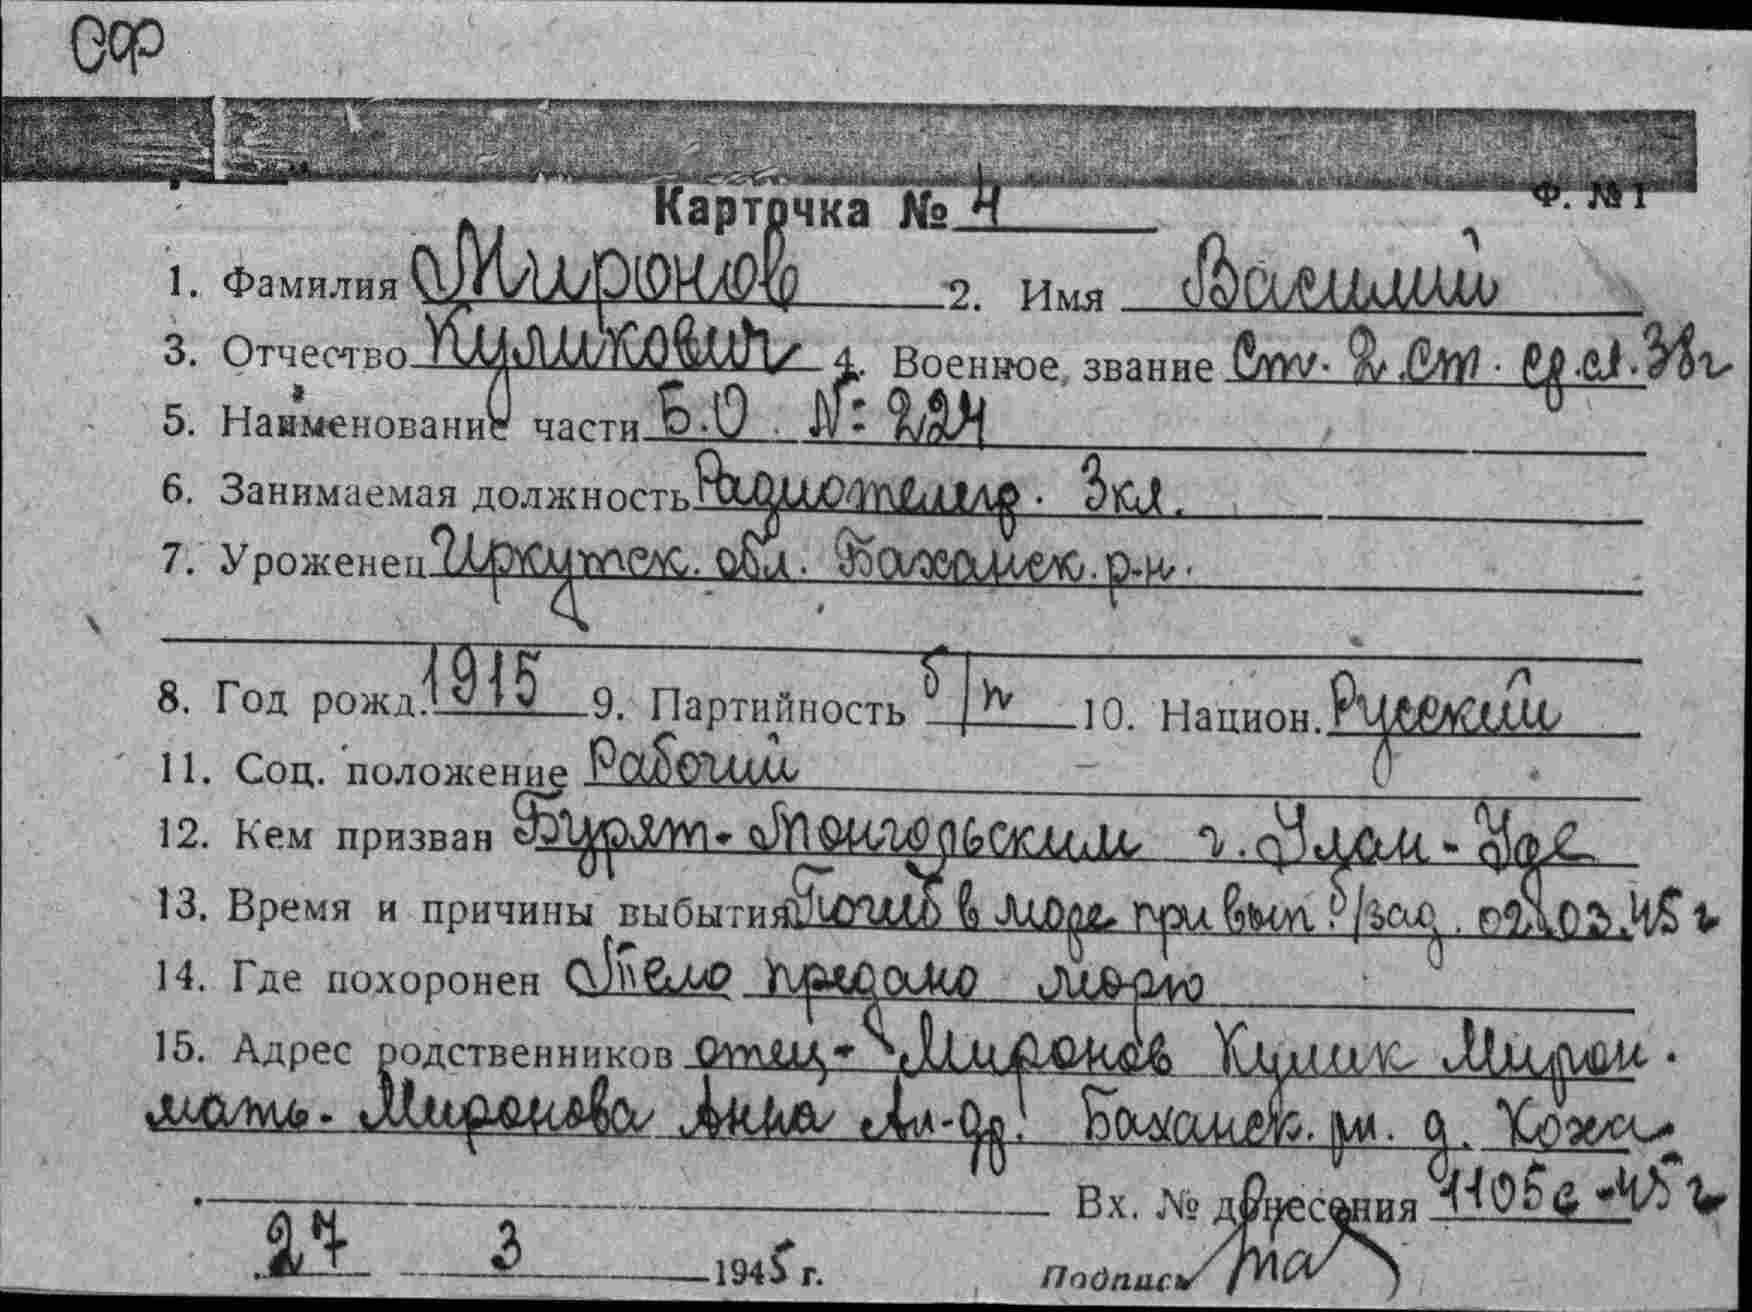 ОФ
Ф. № 1
Карточка № 4
1. Фамилия Миронов 2. Имя Василий
3. Отчество Куликович 4. Военное звание Ст. 2 ст. ср.сл. 38г
5. Наименование части Б.О. № 224
6. Занимаемая должность Радиотелегр. 3 кл.
7. Уроженец Иркутск. обл. Боханск. р-н.
8. Год рожд. 1915 9. Партийность б/п 10. Национ. Русский
11. Соц. положение Рабочий
12. Кем призван Бурят-Монгольским г. Улан-Уде
13. Время и причины выбытия Погиб в море при вып. б/зад. 02.03.45 г
14. Где похоронен Тело предано морю
15. Адрес родственников отец - Миронов Кулик Мирон.
мать - Миронова Анна Ал-др. Баханск. рн. д.
Вх. № донесения 1105с-45 г
27 3 1945 г.
Подпись